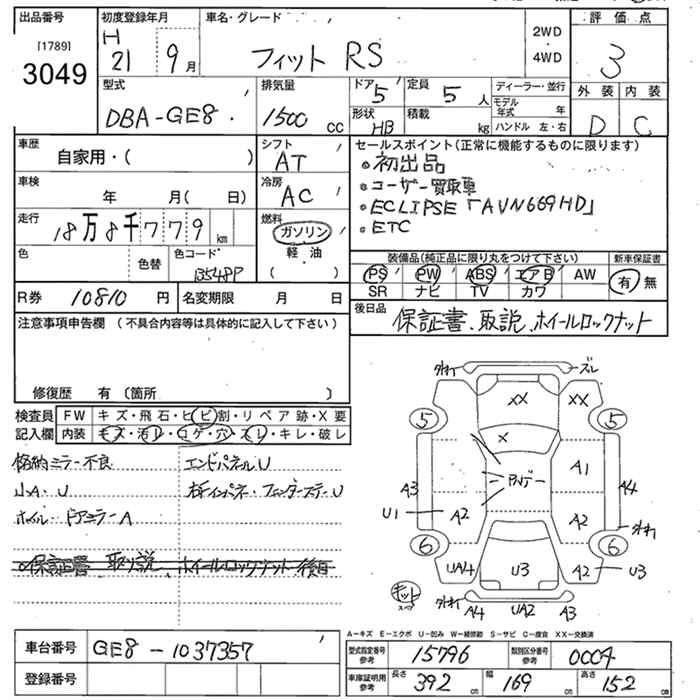 出品番号
[1789]
3049
初度登録年月
H
21 9月
車名・グレード
フィット RS
2WD
・
4WD
評価点
3
外装 内装
D C
型式
DBA-GE8
排気量
1500 cc
ドア 5
形状 HB
定員 5 人
積載 kg
ディーラー・並行
モデル年式 年
ハンドル 左・右
車歴
自家用・( )
車検
年 月( 日)
走行
18万8千779km
色
色替
色コード
シフト
AT
冷房
AC
燃料
ガソリン
軽油
( )
R券 10810 円
名変期限 月 日
セールスポイント(正常に機能するものに限ります)
・初出品
・ユーザー買取車
・ECLIPSE「AVN669HD」
・ETC
装備品(純正品に限り丸をつけて下さい)
PS PW ABS エアB AW
SR ナビ TV カワ
新車保証書
有・無
後日品
保証書、取説、ホイールロックナット
注意事項申告欄 (不具合内容等は具体的に記入して下さい)
修復歴 有〔箇所 〕
検査員記入欄
FW キズ・飛石・ヒビ割・リペア跡・X要
内装 キズ・汚レ・コゲ・穴・スレ・キレ・破レ
格納ミラー不良
小A、U
ホイル、ドアミラーA
エンドパネルU
右インパネ、フェンダーステーU
保証書、取り説、ホイールロックナット後日
外れ ズレ
XX XX
5 5
X
A1
A3 A4
U1 A2 A2
外れ
6 6
UA4 U3 A2 U3
キット
スペア
外れ A4 UA2 A3
A-キズ E-エクボ U-凹み W-補修跡 S-サビ C-腐食 XX-交換済
車台番号 GE8-1037357
登録番号
型式指定番号 参考 15796
類別区分番号 参考 0004
車庫証明用 参考
長さ 392 cm
幅 169 cm
高さ 152 cm